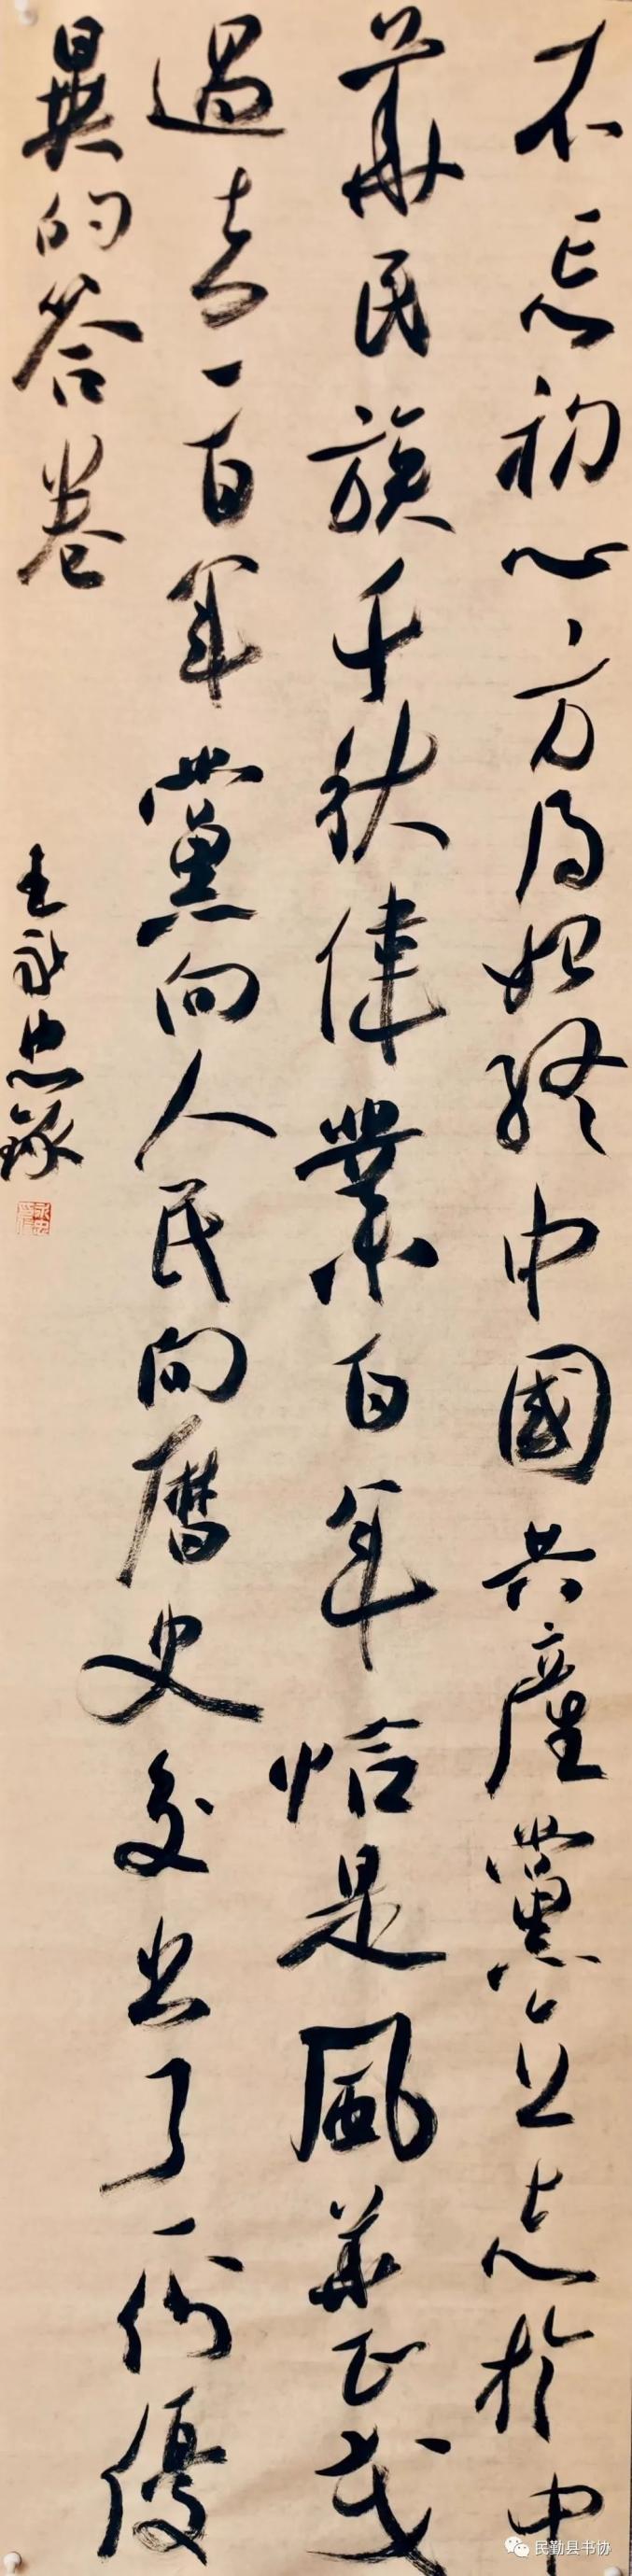 不忘初心方得始終中國共產黨立志於中
華民族千秋偉業百年恰是風華正茂
過去一百年黨向人民向曆史交出了一份優
異的答卷
王永忠錄
民勤县书协